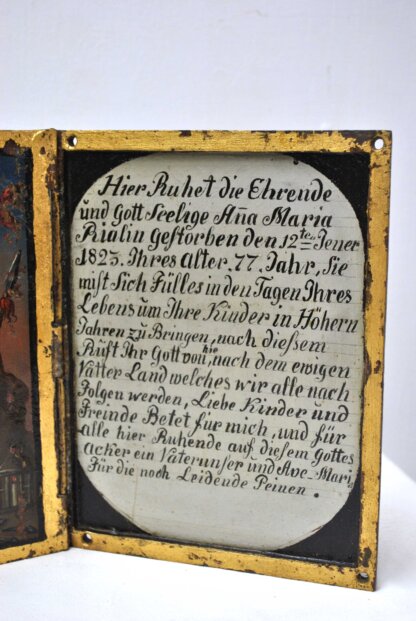 Hier Ruhet die Ehrende
und Gott Seelige Aña Maria
Riulin gestorben den 12te Jener
1823. Ihres alter. 77. Jahr, Sie
mist Sich Fülles in den Tagen Ihres
Lebens um Ihre Kinder in Höhern
Jahren zu Bringen, nach dießem
Rüft Ihr Gott von hie, nach dem ewigen
Vätter Land welches wir alle nach
Folgen werden, Liebe Kinder und
Freinde Betet für mich, und für
alle hier Ruhende auf diesem Gottes
Acker ein Vaterunser und Ave-Mari
Für die noch Leidende Peinen.